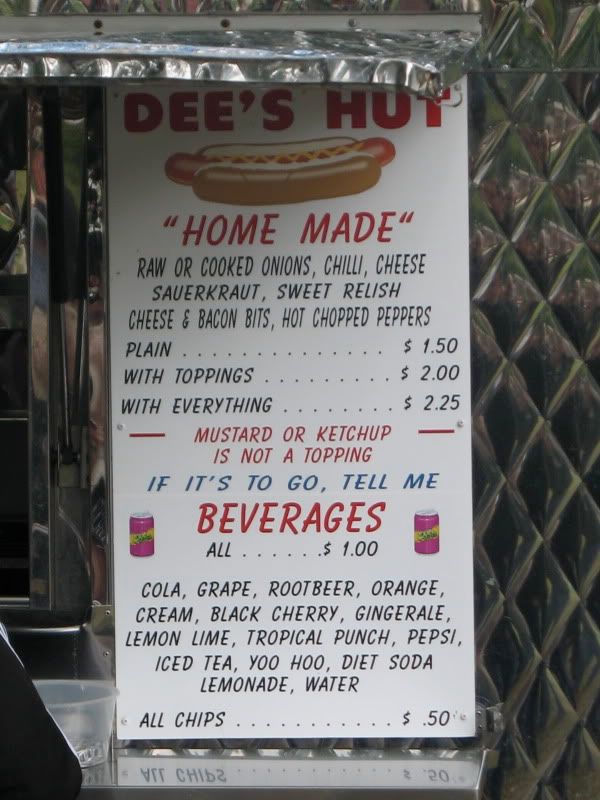 DEE'S HUT
"HOME MADE"
RAW OR COOKED ONIONS, CHILLI, CHEESE
SAUERKRAUT, SWEET RELISH
CHEESE & BACON BITS, HOT CHOPPED PEPPERS
PLAIN . . . . . . . . . . . . . . . $ 1.50
WITH TOPPINGS . . . . . . . . . $ 2.00
WITH EVERYTHING . . . . . . . . $ 2.25
MUSTARD OR KETCHUP
IS NOT A TOPPING
IF IT'S TO GO, TELL ME
BEVERAGES
ALL . . . . . .$ 1.00
COLA, GRAPE, ROOTBEER, ORANGE,
CREAM, BLACK CHERRY, GINGERALE,
LEMON LIME, TROPICAL PUNCH, PEPSI,
ICED TEA, YOO HOO, DIET SODA
LEMONADE, WATER
ALL CHIPS . . . . . . . . . . . . $ .50